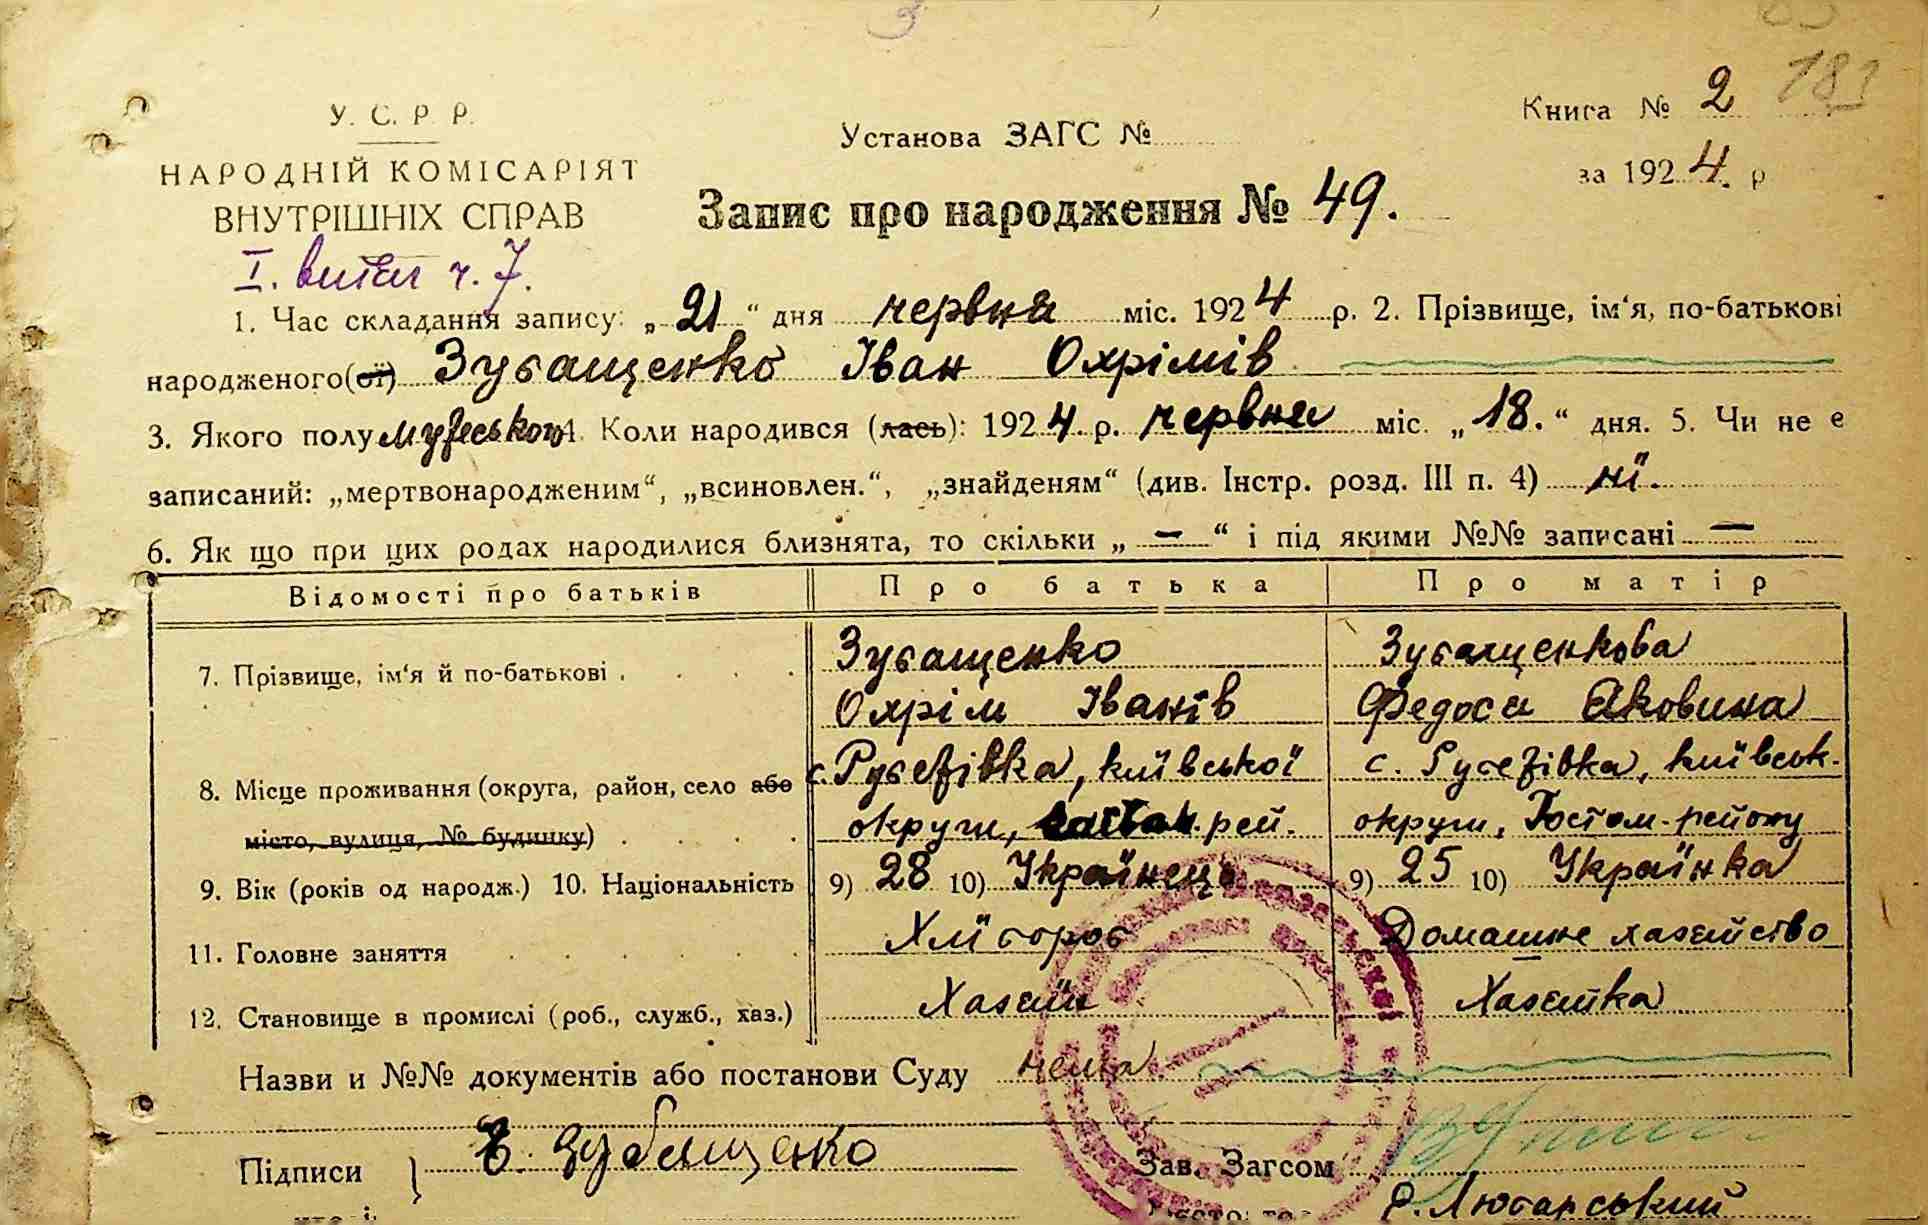 3
181
У. С. Р. Р.
НАРОДНІЙ КОМІСАРІЯТ
ВНУТРІШНІХ СПРАВ
Установа ЗАГС №
Книга № 2
за 1924. р
Запис про народження № 49.
I. витяг ч. 7.
1. Час складання запису: „21“ дня червня міс. 1924 р. 2. Прізвище, ім‘я, по-батькові
народженого(ої) Зубащенко Іван Охрімів
3. Якого полу мужеського 4. Коли народився (лась): 1924. р. червня міс. „18.“ дня. 5. Чи не є
записаний: „мертвонародженим“, „всиновлен.“, „знайденям“ (див. Інстр. розд. III п. 4) ні.
6. Як що при цих родах народилися близнята, то скільки „ — “ і під якими №№ записані —
Відомості про батьків Про батька Про матір
7. Прізвище, ім‘я й по-батькові . Зубащенко Зубащенкова
Охрім Іванів Федося Яковина
8. Місце проживання (округа, район, село або с. Рубежівка, київської с. Рубежівка, київськ.
місто, вулиця, № будинку) округи, рей. округи, Гостом. району
9. Вік (років од народж.) 10. Національність 9) 28 10) Українець 9) 25 10) Українка
11. Головне заняття Хлібороб Домашнє хазяйство
12. Становище в промислі (роб., служб., хаз.) Хазяїн Хазяйка
Назви и №№ документів або постанови Суду нема
Підписи } Зубащенко Зав. Загсом
Р. Лютарський